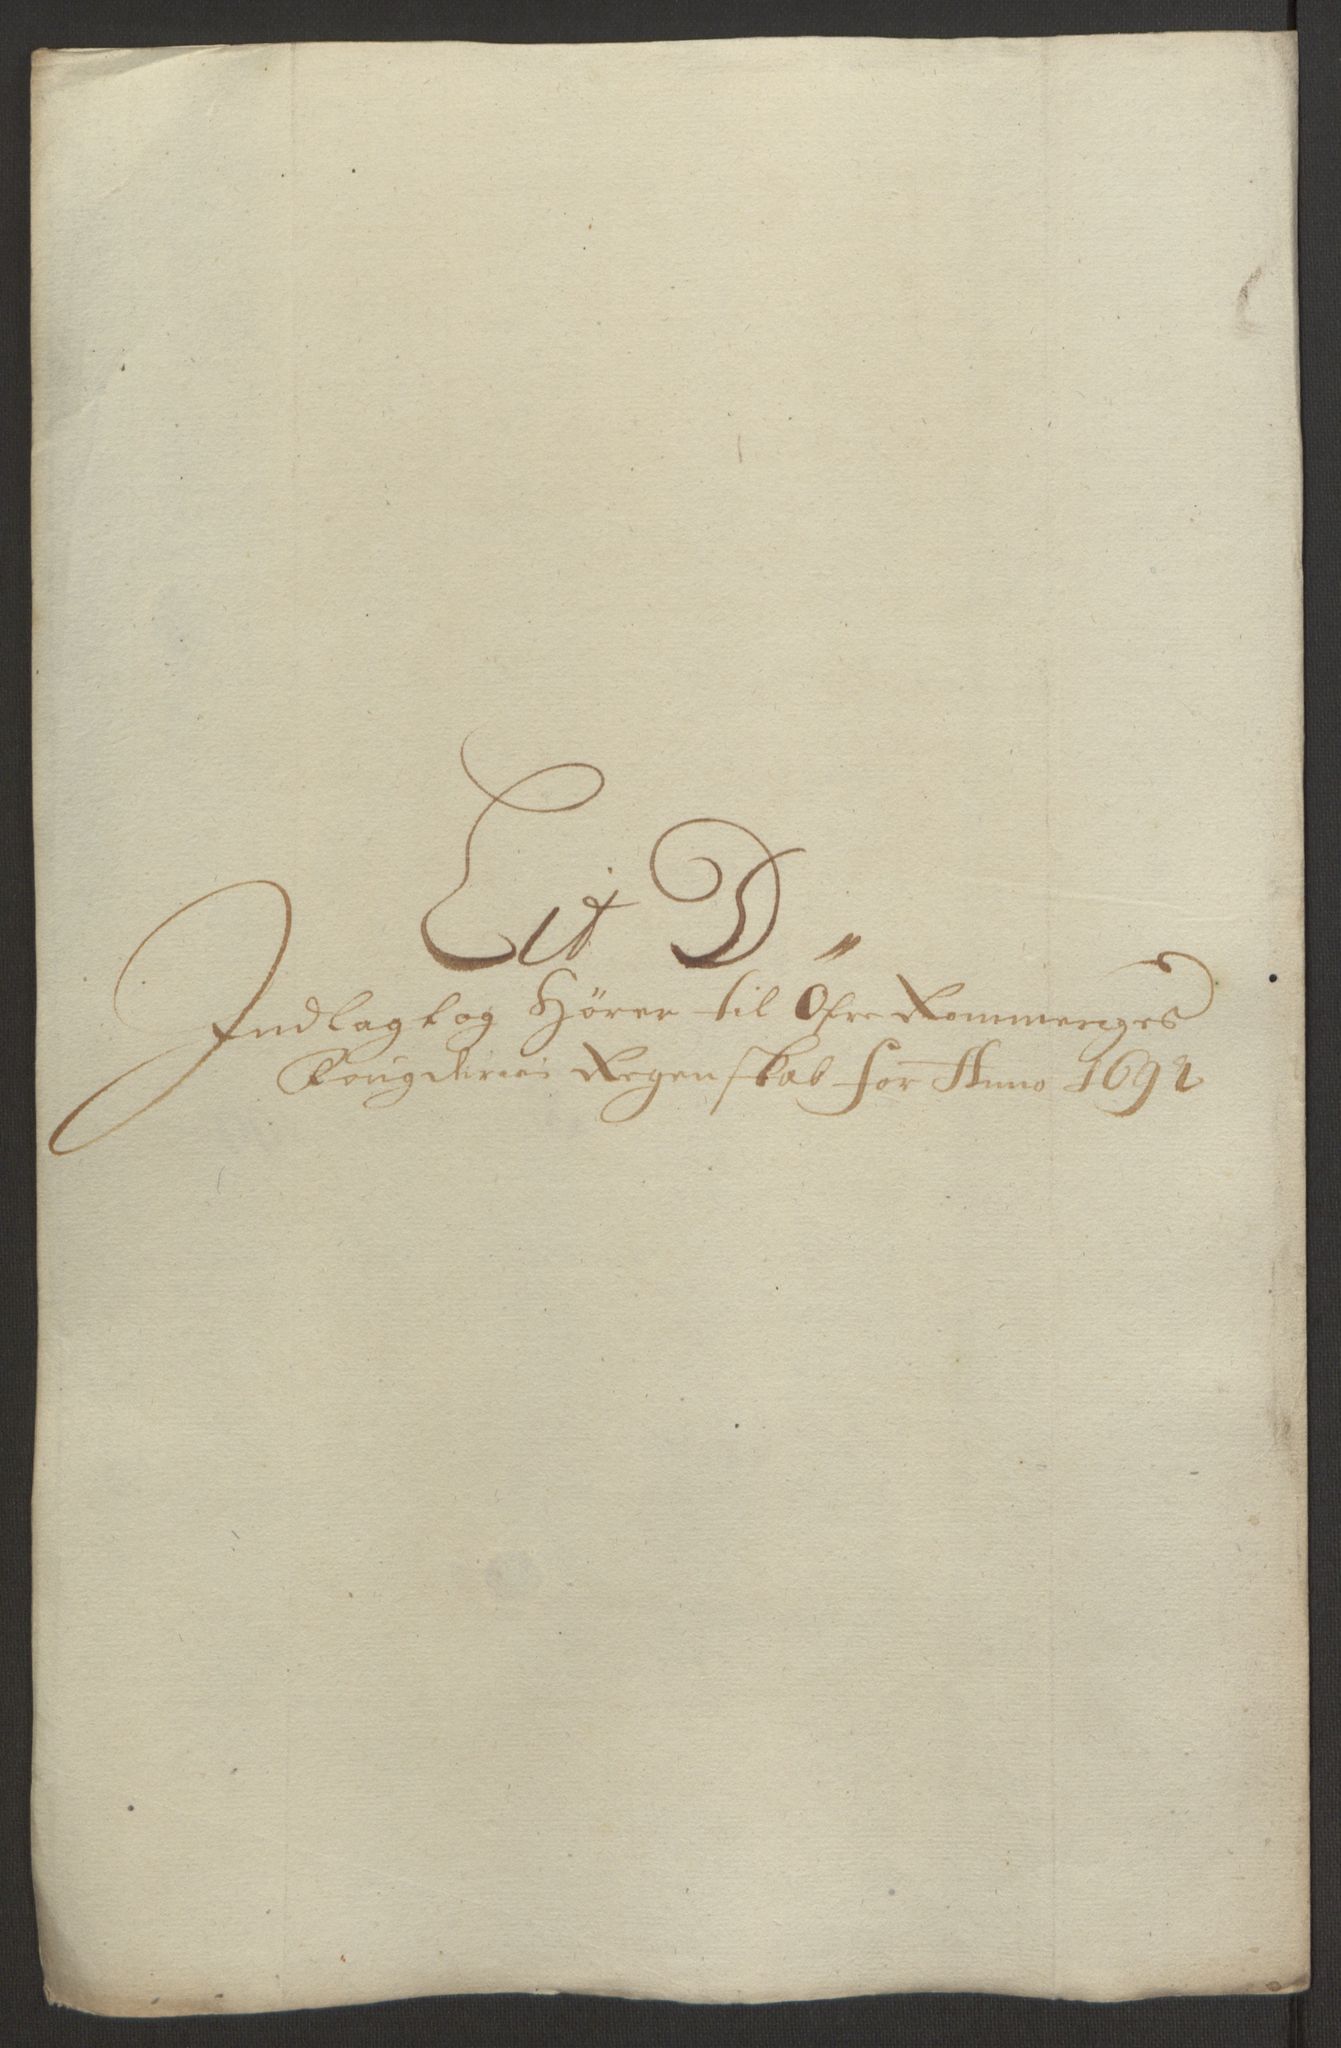 Lit D
Indlagt og Hörer til Öfre Rommeriges
Fougderies Regenskab for Anno 1692